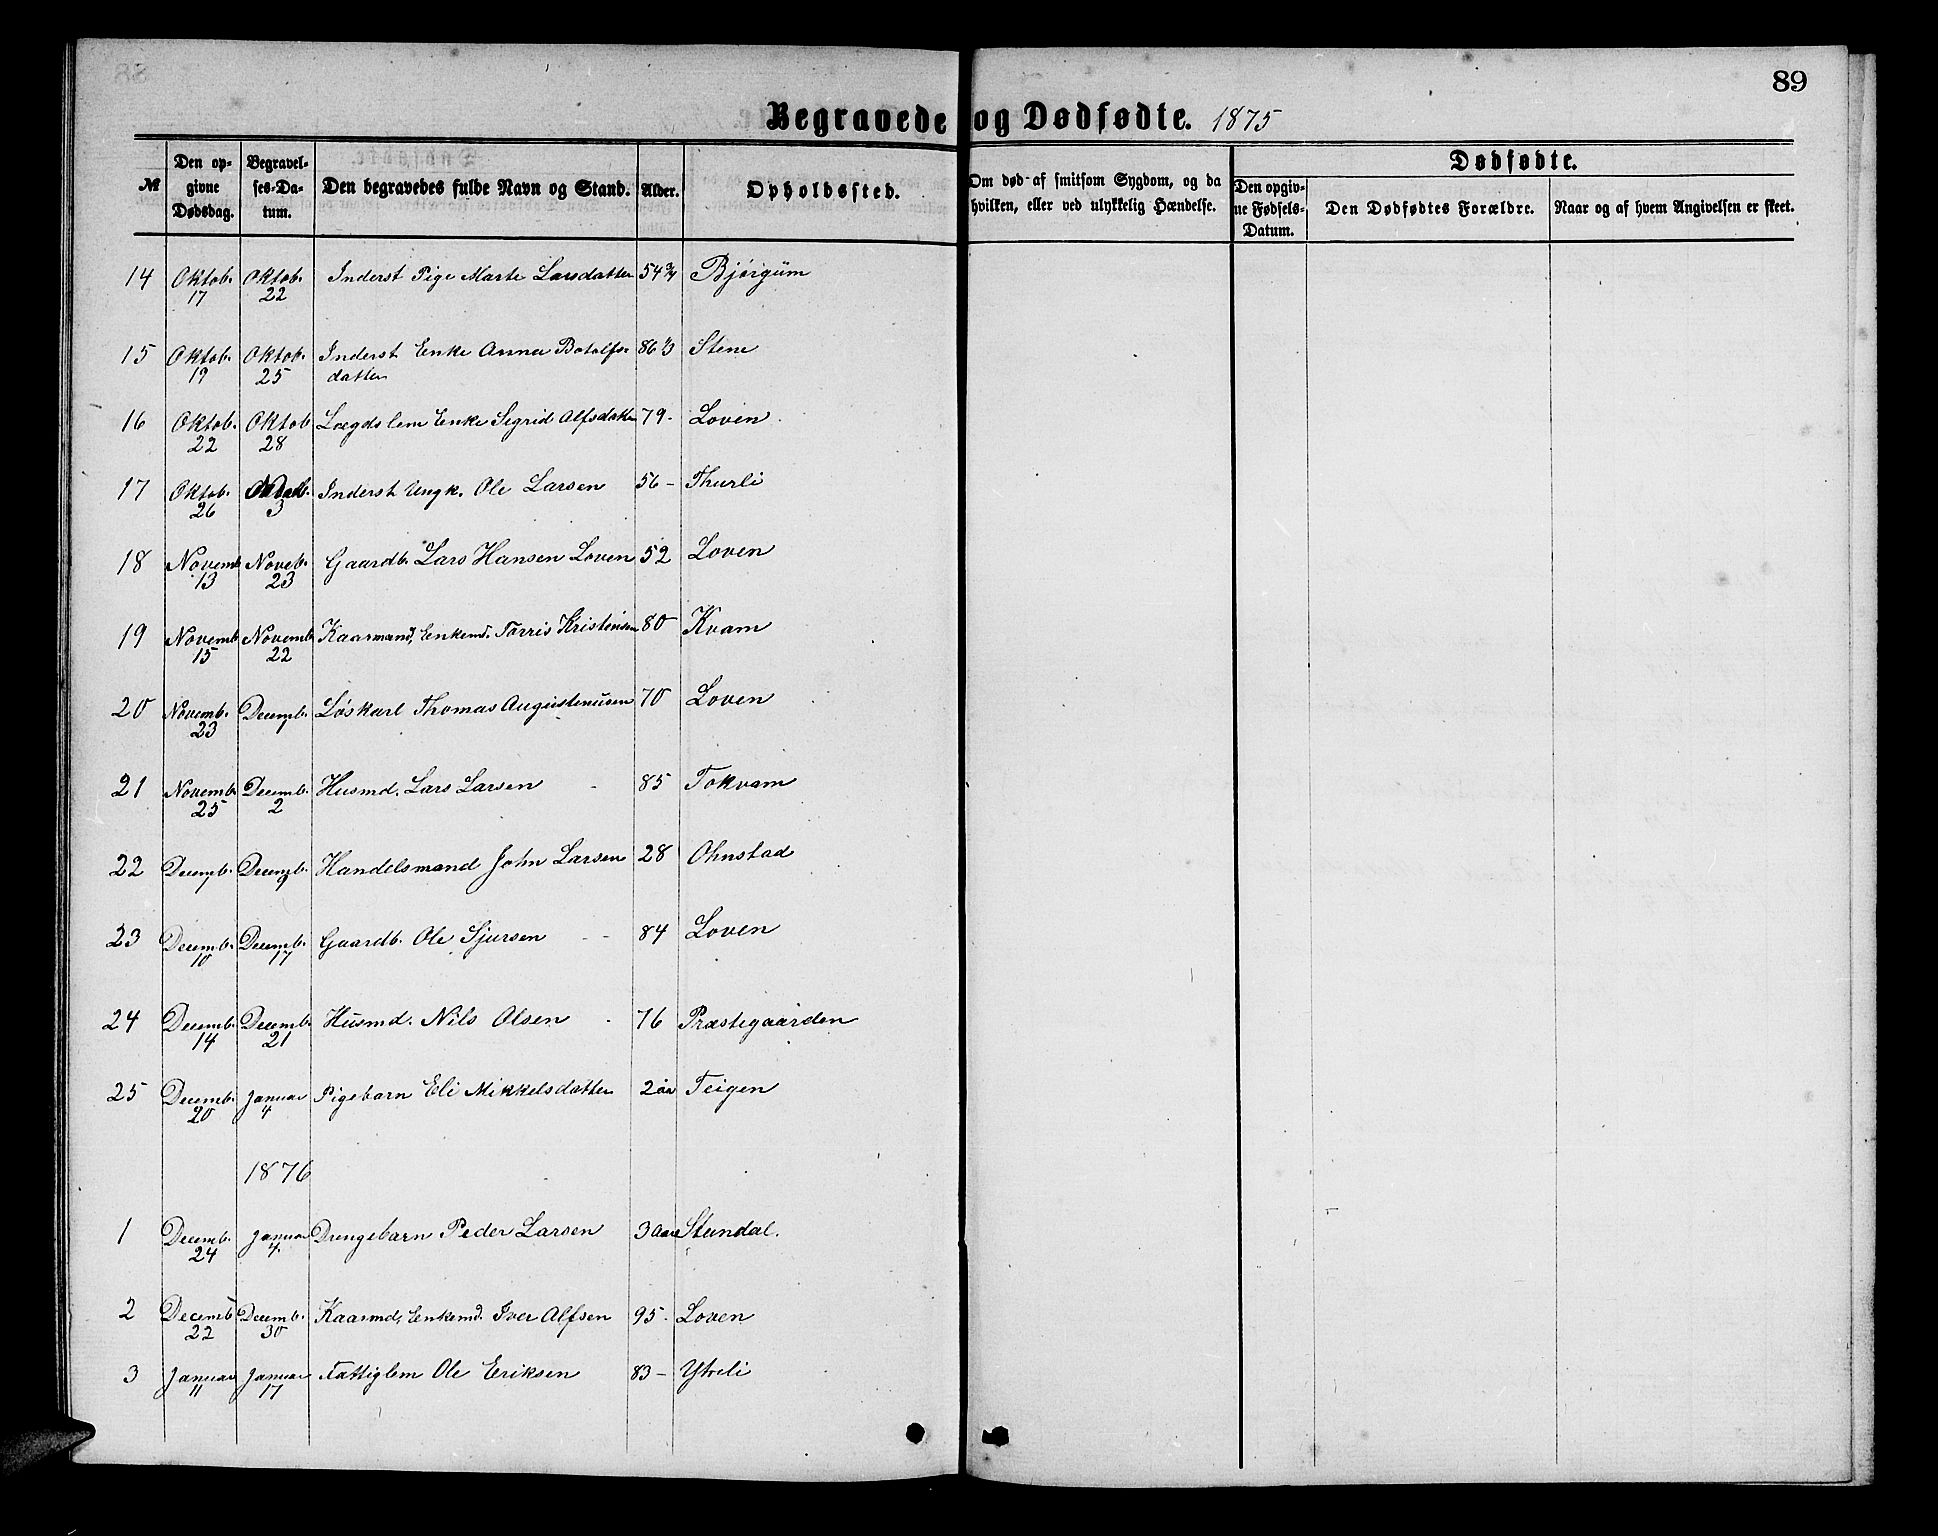 89
Begravede og Dødfødte. 1875
№
Den opgivne Dødsdag.
Begravelses-Datum.
Den begravedes fulde Navn og Stand.
Alder.
Opholdssted.
Om død af smitsom Sygdom, og da hvilken, eller ved ulykkelig Hændelse.
Dødfødte.
Den opgivne Fødsels-Datum.
Den Dødfødtes Forældre.
Naar og af hvem Angivelsen er skeet.
14 Oktob. 17 Oktob. 22 Inderst Pige Marte Larsdatter 54 3/4 Bjørgum
15 Oktob. 19 Oktob. 25 Inderst Enke Anna Botolfsdatter 86 1/3 Stene
16 Oktob. 22 Oktob 28 Lægdslem Enke Sigrid Alfsdatter 79- Loven
17 Oktob. 26 3 Inderst Ungk. Ole Larsen 56- Thurli
18 Novemb 13 Noveb. 23 Gaardb. Lars Hansen Loven 52 Loven
19 Novemb. 15 Novemb 22 Kaarmand, Enkemd. Torris Kristensen 80 Kvam
20 Novemb. 23 Decemb. Løskarl Thomas Augustenusen 70 Loven
21 Novemb. 25 Decemb. 2 Husmd. Lars Larsen 85 Tokvam
22 Decemb. Decemb. 9 Handelsmand John Larsen 28 Ohnstad
23 Decemb. 10 Decemb. 17 Gaardb. Ole Sjursen 84 Loven
24 Decemb. 14 Decemb. 21 Husmd. Nils Olsen 76 Præstegaarden
25 Decemb. 20 Januar 4 Pigebarn Eli Mikkelsdatter 2 aa Teigen
1876
1 Decemb. 24 Januar 4 Drengebarn Peder Larsen 3 Aar Stundal.
2 Decemb 22 Decemb. 30 Kaarmd, Enkemd. Iver Alfsen 95- Loven
3 Januar 11 Januar 17 Fattiglem Ole Eriksen 83- Ytreli